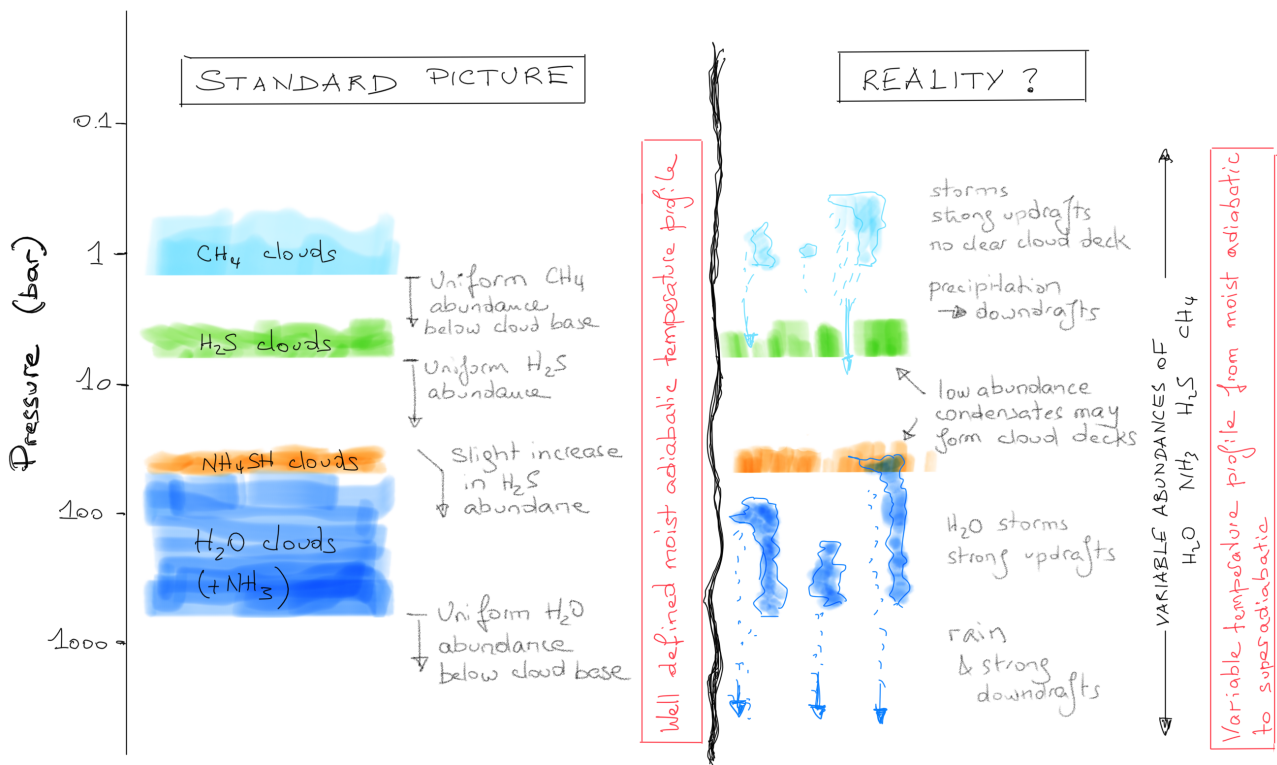 STANDARD PICTURE
Pressure (bar)
0.1
1
10
100
1000
CH4 clouds
Uniform CH4
abundance
below cloud base
H2S clouds
Uniform H2S
abundance
NH4SH clouds
Slight increase
in H2S
abundance
H2O clouds
(+NH3)
Uniform H2O
abundance
below cloud base
Well defined moist adiabatic temperature profile
REALITY?
storms
strong updrafts
no clear cloud deck
precipitation
→ downdrafts
low abundance
condensates may
form cloud decks
H2O storms
strong updrafts
rain
& strong
downdrafts
VARIABLE ABUNDANCES OF
H2O NH3 H2S CH4
Variable temperature profile from moist adiabatic
to superadiabatic